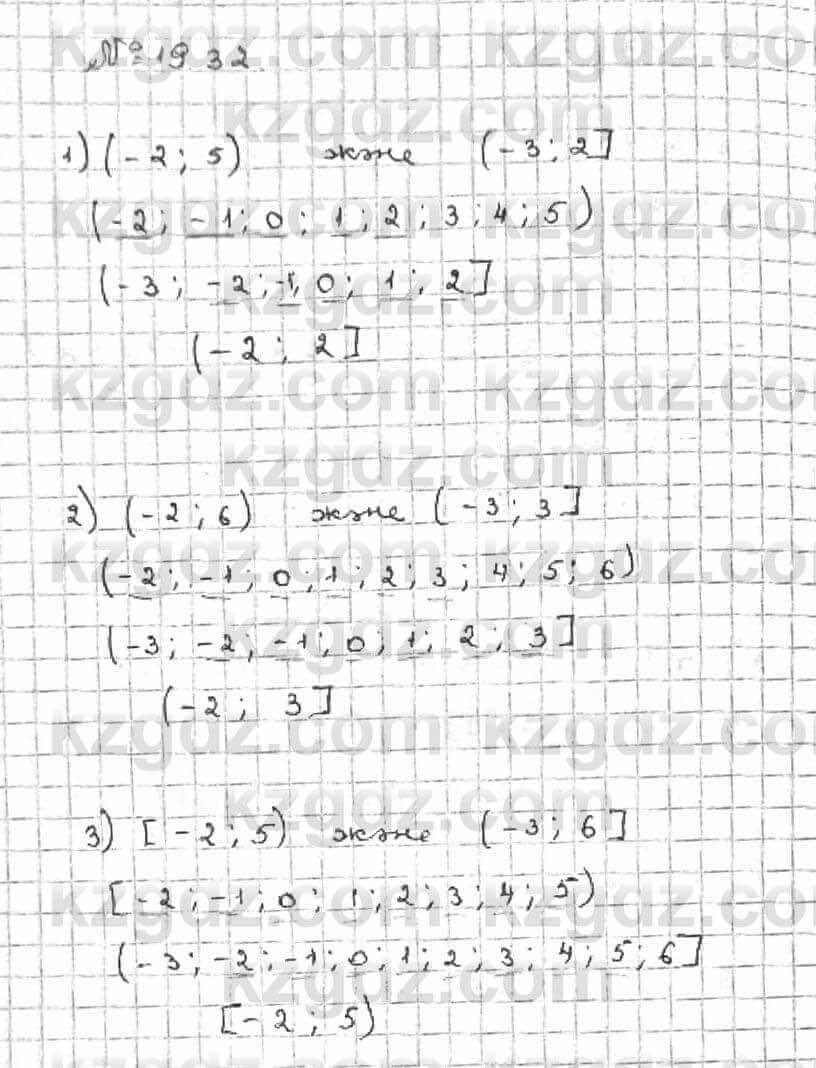 № 1932
1) (-2; 5) және (-3; 2]
(-2; -1; 0; 1; 2; 3; 4; 5)
(-3; -2; -1, 0; 1; 2]
(-2; 2]
2) (-2; 6) және (-3; 3]
(-2; -1; 0; 1; 2; 3; 4; 5; 6)
(-3; -2; -1; 0; 1; 2; 3]
(-2; 3]
3) [-2; 5) және (-3; 6]
[-2; -1; 0; 1; 2; 3; 4; 5)
(-3; -2; -1; 0; 1; 2; 3; 4; 5; 6]
[-2; 5)